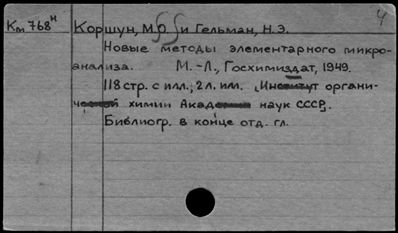 4
Км 768н Коршун, М.О. и Гельман, Н.Э.
Новые методы элементарного микро-
анализа. М.-Л., Госхимиздат, 1949.
118 стр. с илл.; 2 л. илл. „Институт органи-
ческой химии Академии наук СССР„.
Библиогр. в конце отд. гл.